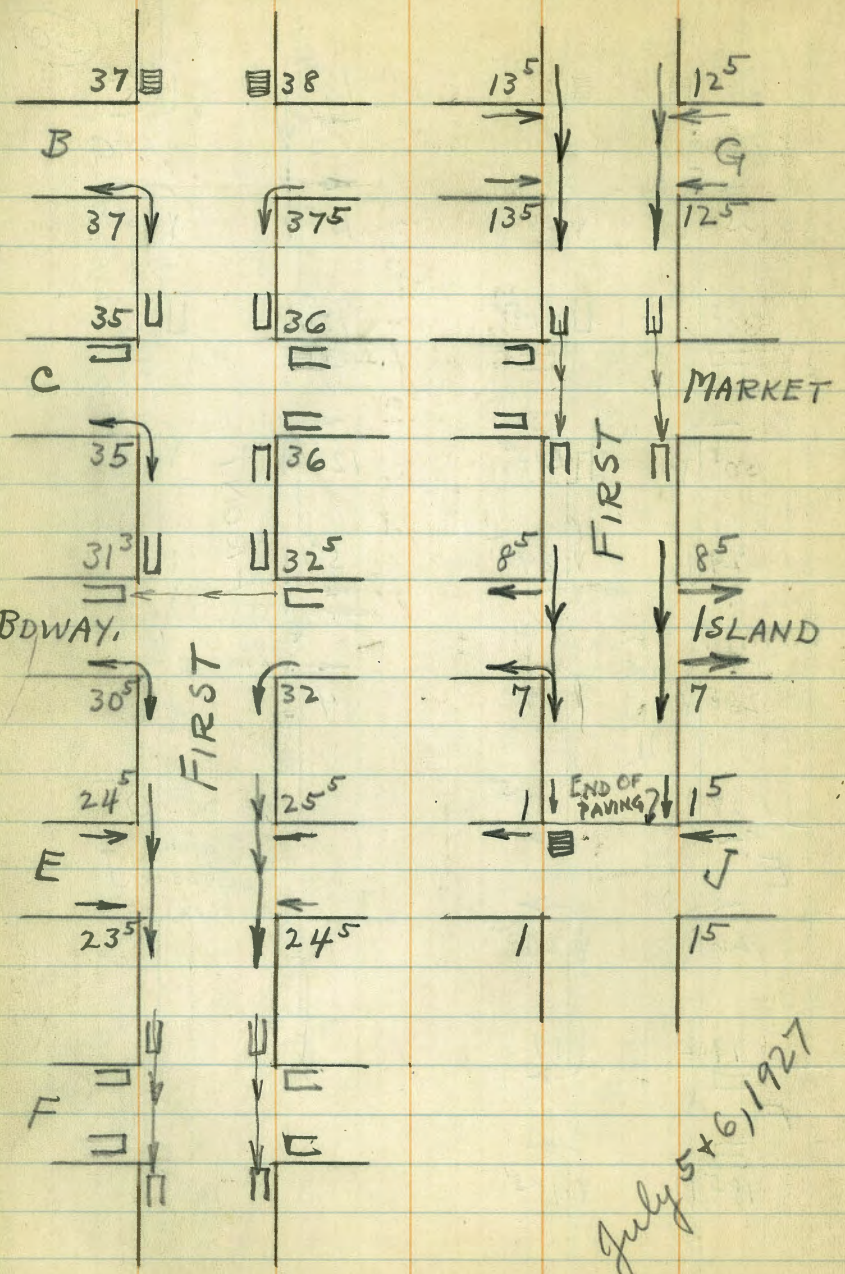 37 38
B
37 37⁵
35 36
C
35 36
31³ 32⁵
BDWAY.
30⁵ 32
FIRST
24⁵ 25⁵
E
23⁵ 24⁵
F
13⁵ 12⁵
G
13⁵ 12⁵
MARKET
FIRST
8⁵ 8⁵
ISLAND
7 7
1 END OF 1⁵
PAVING
J
1 1⁵
July 5 & 6, 1927